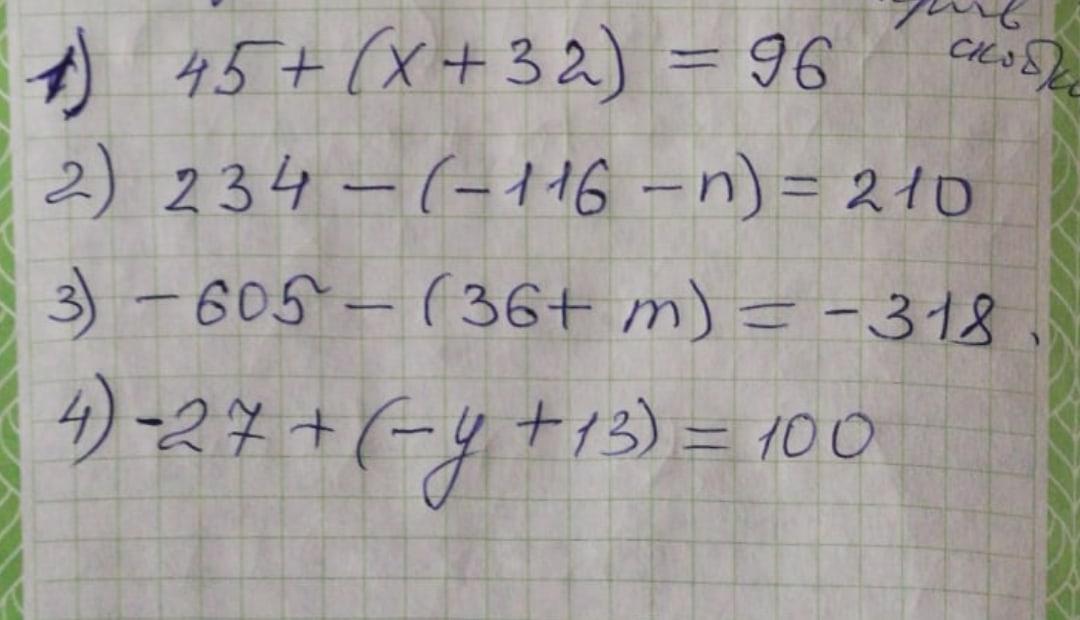 скобки
1) 45 + (x + 32) = 96
2) 234 - (-116 - n) = 210
3) -605 - (36 + m) = -318.
4) -27 + (-y + 13) = 100